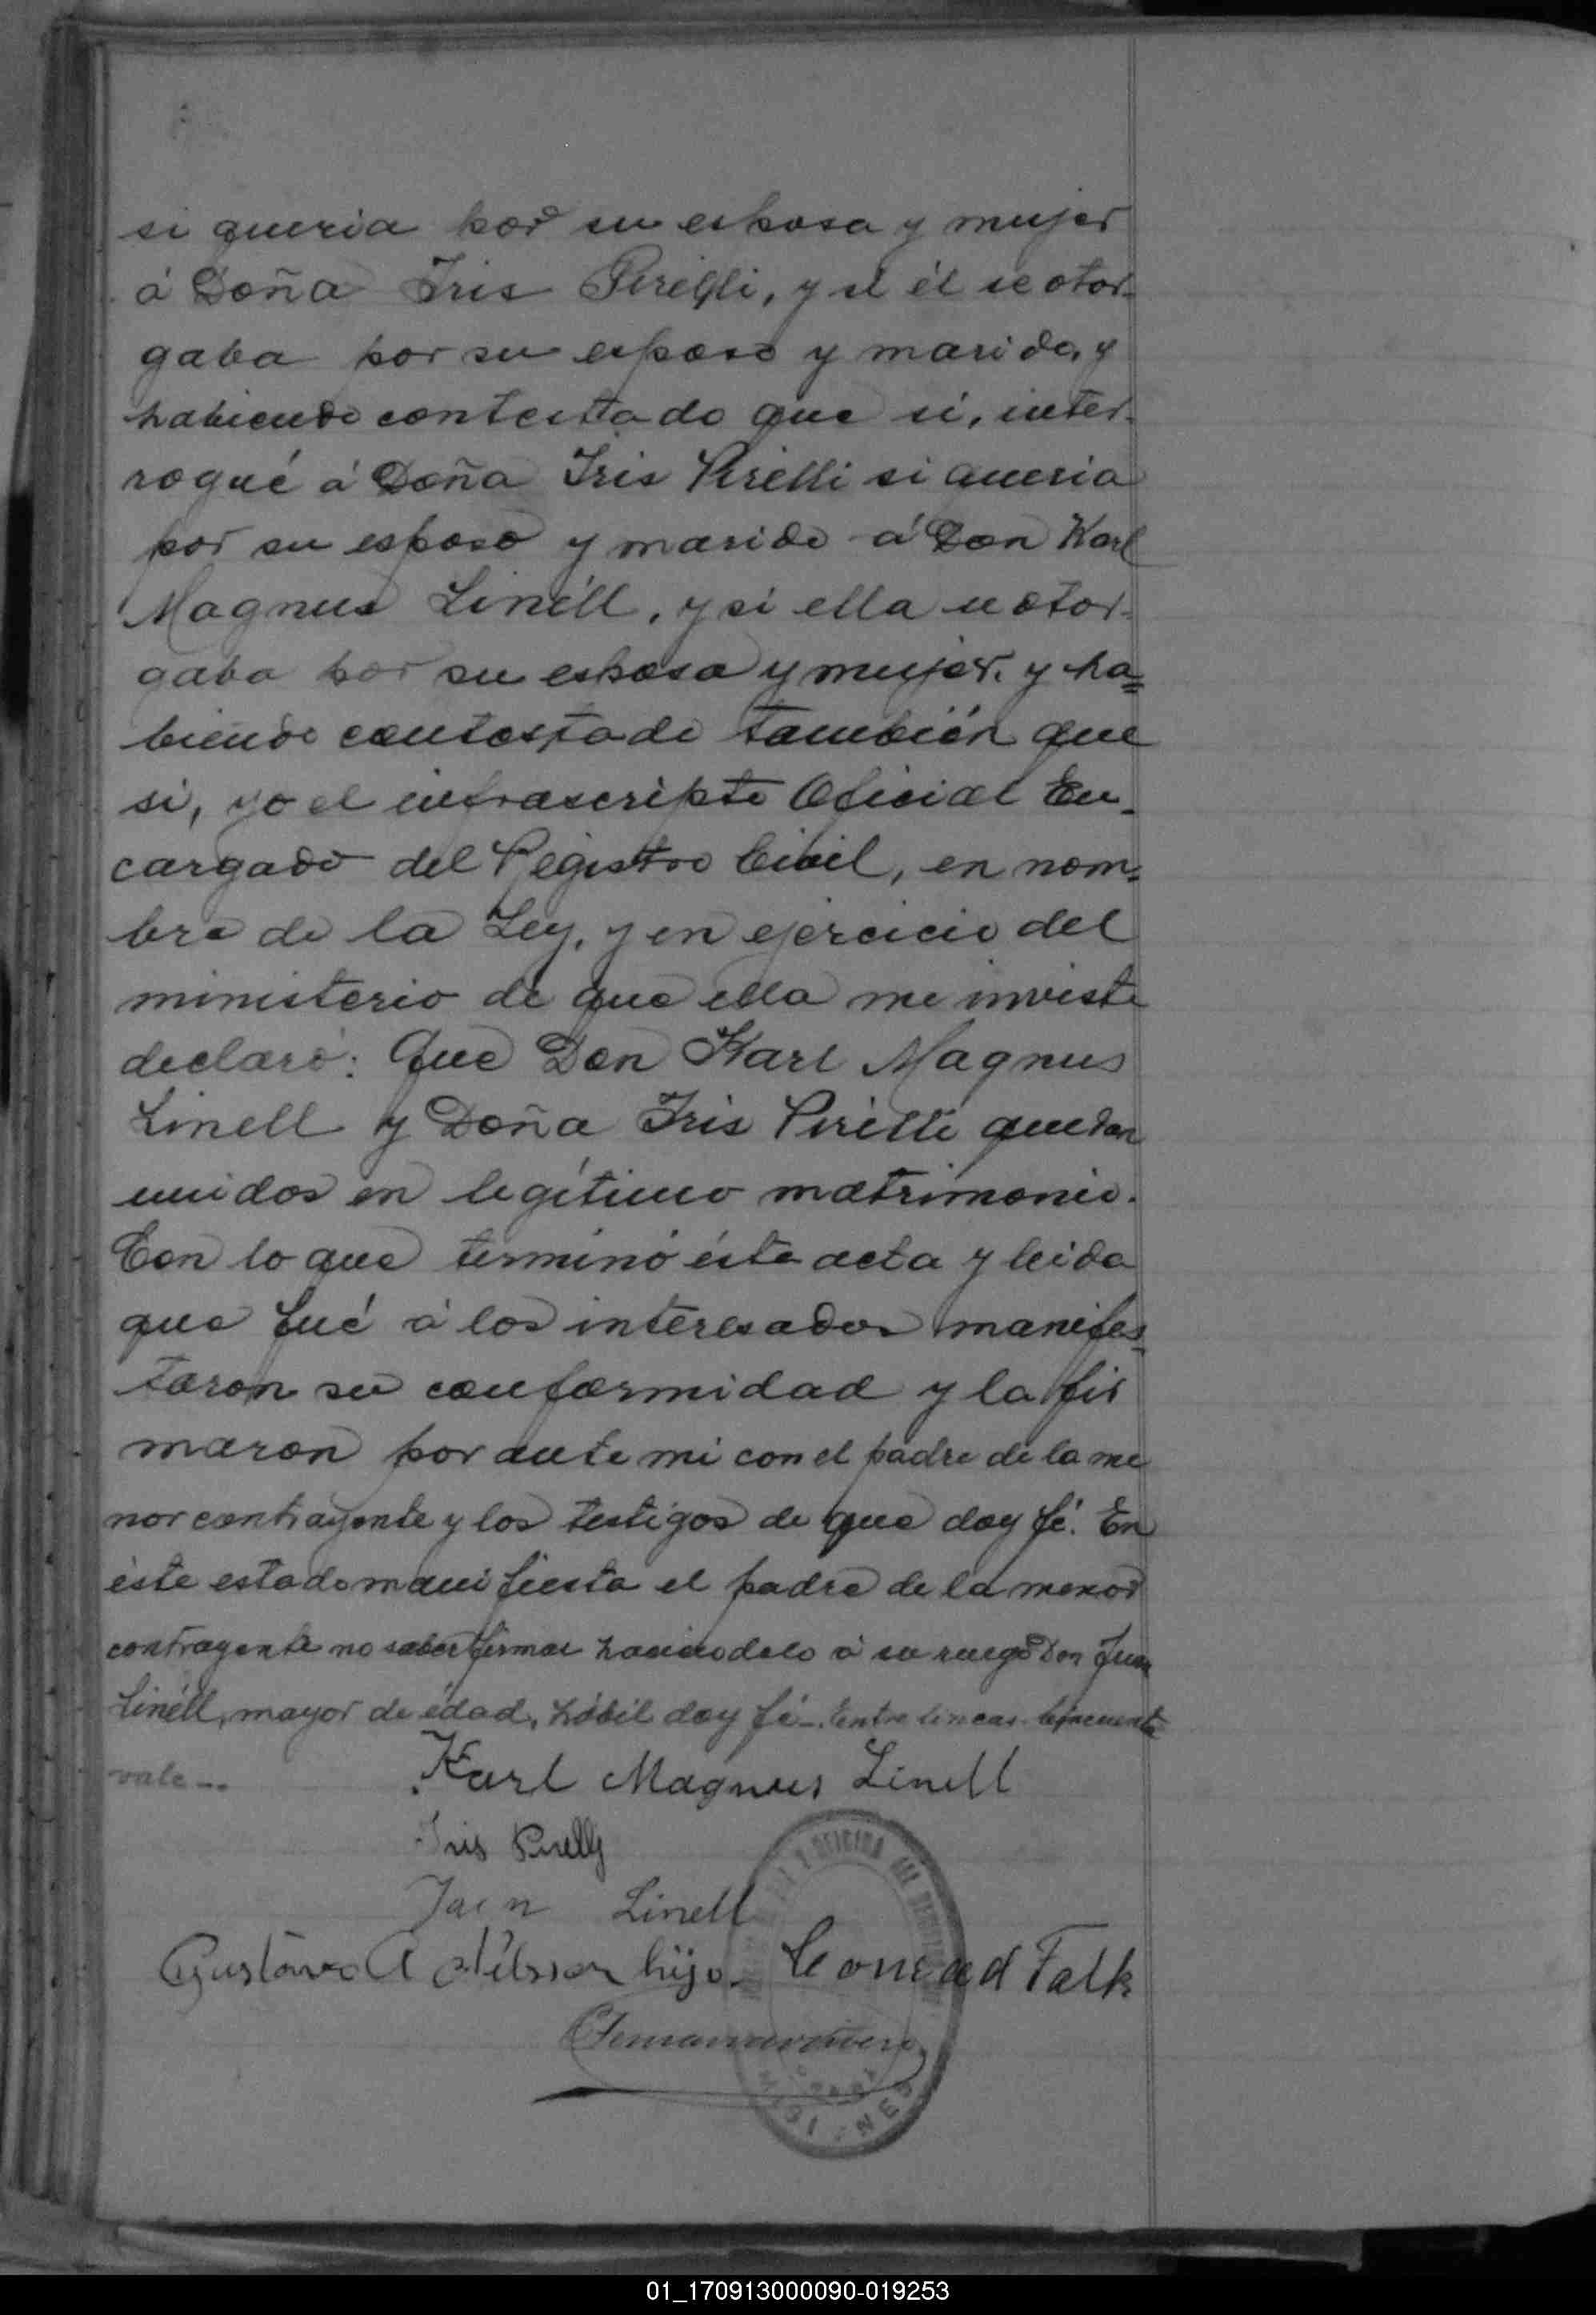 si queria por su esposa y mujer
á Doña Iris Pirelli, y si él se otor-
gaba por su esposo y marido, y
habiendo contestado que si, inter-
rogué á Doña Iris Pirelli si queria
por su esposo y marido á Don Karl
Magnus Linéll, y si ella se otor-
gaba por su esposa y mujer, y ha=
biendo contestado también que
si, yo el infrascripto Oficial En-
cargado del Registro Civil, en nom=
bre de la Ley, y en ejercicio del
ministerio de que ella me inviste
declaro: Que Don Karl Magnus
Linell y Doña Iris Pirelli quedan
unidos en legítimo matrimonio.
Con lo que terminó ésta acta y leida
que fué á los interesados manifes-
taron su conformidad y la fir
maron por ante mi con el padre de la me
nor contrayente y los testigos de que doy fé. En
éste estado manifiesta el padre de la menor
contrayente no saber firmar haciendolo á su ruego Don Juan
Linéll, mayor de édad, hábil doy fé-. Entre lineas-cincuenta
vale-.
Karl Magnus Linell
Iris Pirelly
Jaen Linell
Gustavo A Nilsson hijo. Conrad Falk
OFICINA DEL REGISTRO
01_170913000090-019253